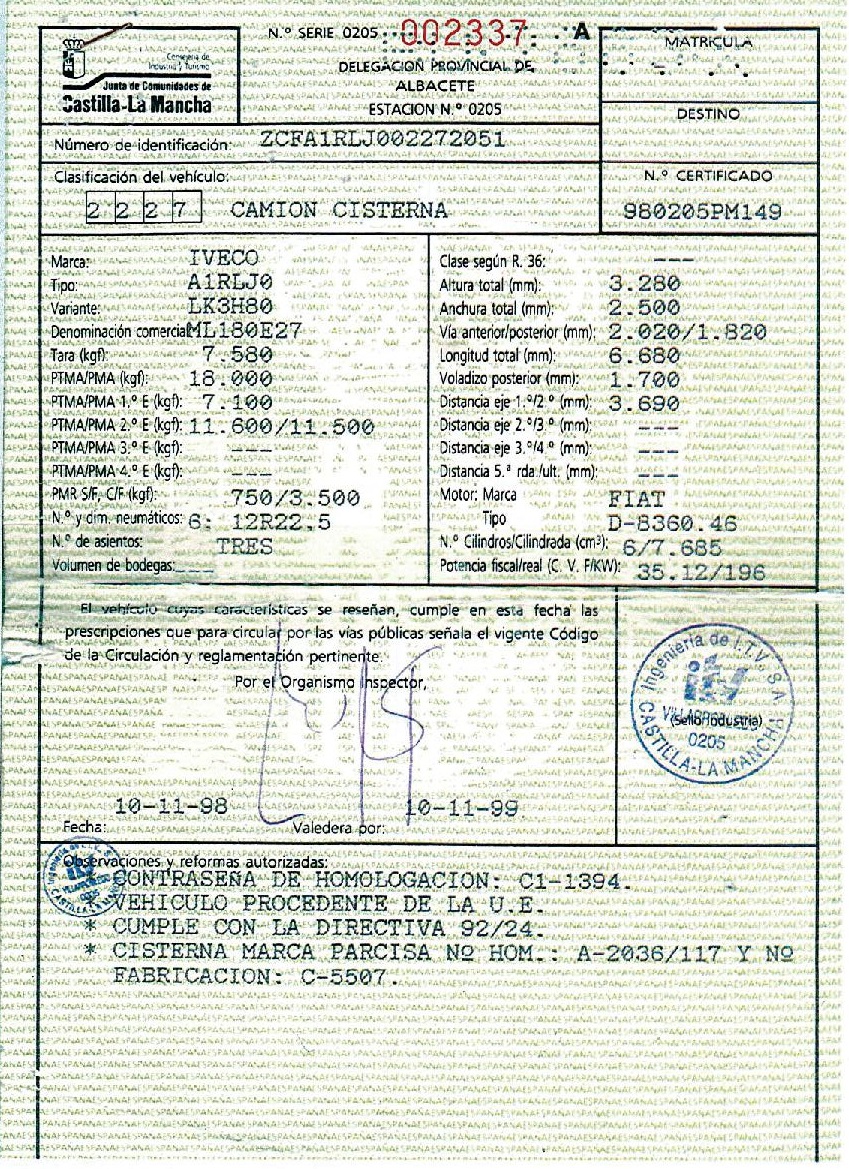 Consejería de
Industria y Turismo
Junta de Comunidades de
Castilla-La Mancha
N.º SERIE 0205 002337 A
DELEGACION PROVINCIAL DE
ALBACETE
ESTACION N.º 0205
MATRICULA
DESTINO
Número de identificación: ZCFA1RLJ002272051
Clasificación del vehículo:
2 2 2 7 CAMION CISTERNA
N.º CERTIFICADO
980205PM149
Marca: IVECO
Tipo: A1RLJ0
Variante: LK3H80
Denominación comercial ML180E27
Tara (kgf): 7.580
PTMA/PMA (kgf): 18.000
PTMA/PMA 1.º E (kgf): 7.100
PTMA/PMA 2.º E (kgf): 11.600/11.500
PTMA/PMA 3.º E (kgf): ---
PTMA/PMA 4.º E (kgf): ---
PMR S/F, C/F (kgf): 750/3.500
N.º y dim. neumáticos: 6: 12R22.5
N.º de asientos: TRES
Volumen de bodegas: ---
Clase según R. 36: ---
Altura total (mm): 3.280
Anchura total (mm): 2.500
Vía anterior/posterior (mm): 2.020/1.820
Longitud total (mm): 6.680
Voladizo posterior (mm): 1.700
Distancia eje 1.º/2.º (mm): 3.690
Distancia eje 2.º/3.º (mm): ---
Distancia eje 3.º/4.º (mm): ---
Distancia 5.ª rda./ult. (mm): ---
Motor: Marca FIAT
Tipo D-8360.46
N.º Cilindros/Cilindrada (cm³): 6/7.685
Potencia fiscal/real (C. V. F/KW): 35.12/196
El vehículo cuyas características se reseñan, cumple en esta fecha las
prescripciones que para circular por las vías públicas señala el vigente Código
de la Circulación y reglamentación pertinente.
Por el Organismo Inspector,
Ingeniería de I.T.V. S.A.
itv
(Sello Industria)
0205
CASTILLA-LA MANCHA
Fecha: 10-11-98 Valedera por: 10-11-99
Observaciones y reformas autorizadas:
* CONTRASEÑA DE HOMOLOGACION: C1-1394.
* VEHICULO PROCEDENTE DE LA U.E.
* CUMPLE CON LA DIRECTIVA 92/24.
* CISTERNA MARCA PARCISA Nº HOM.: A-2036/117 Y Nº
FABRICACION: C-5507.